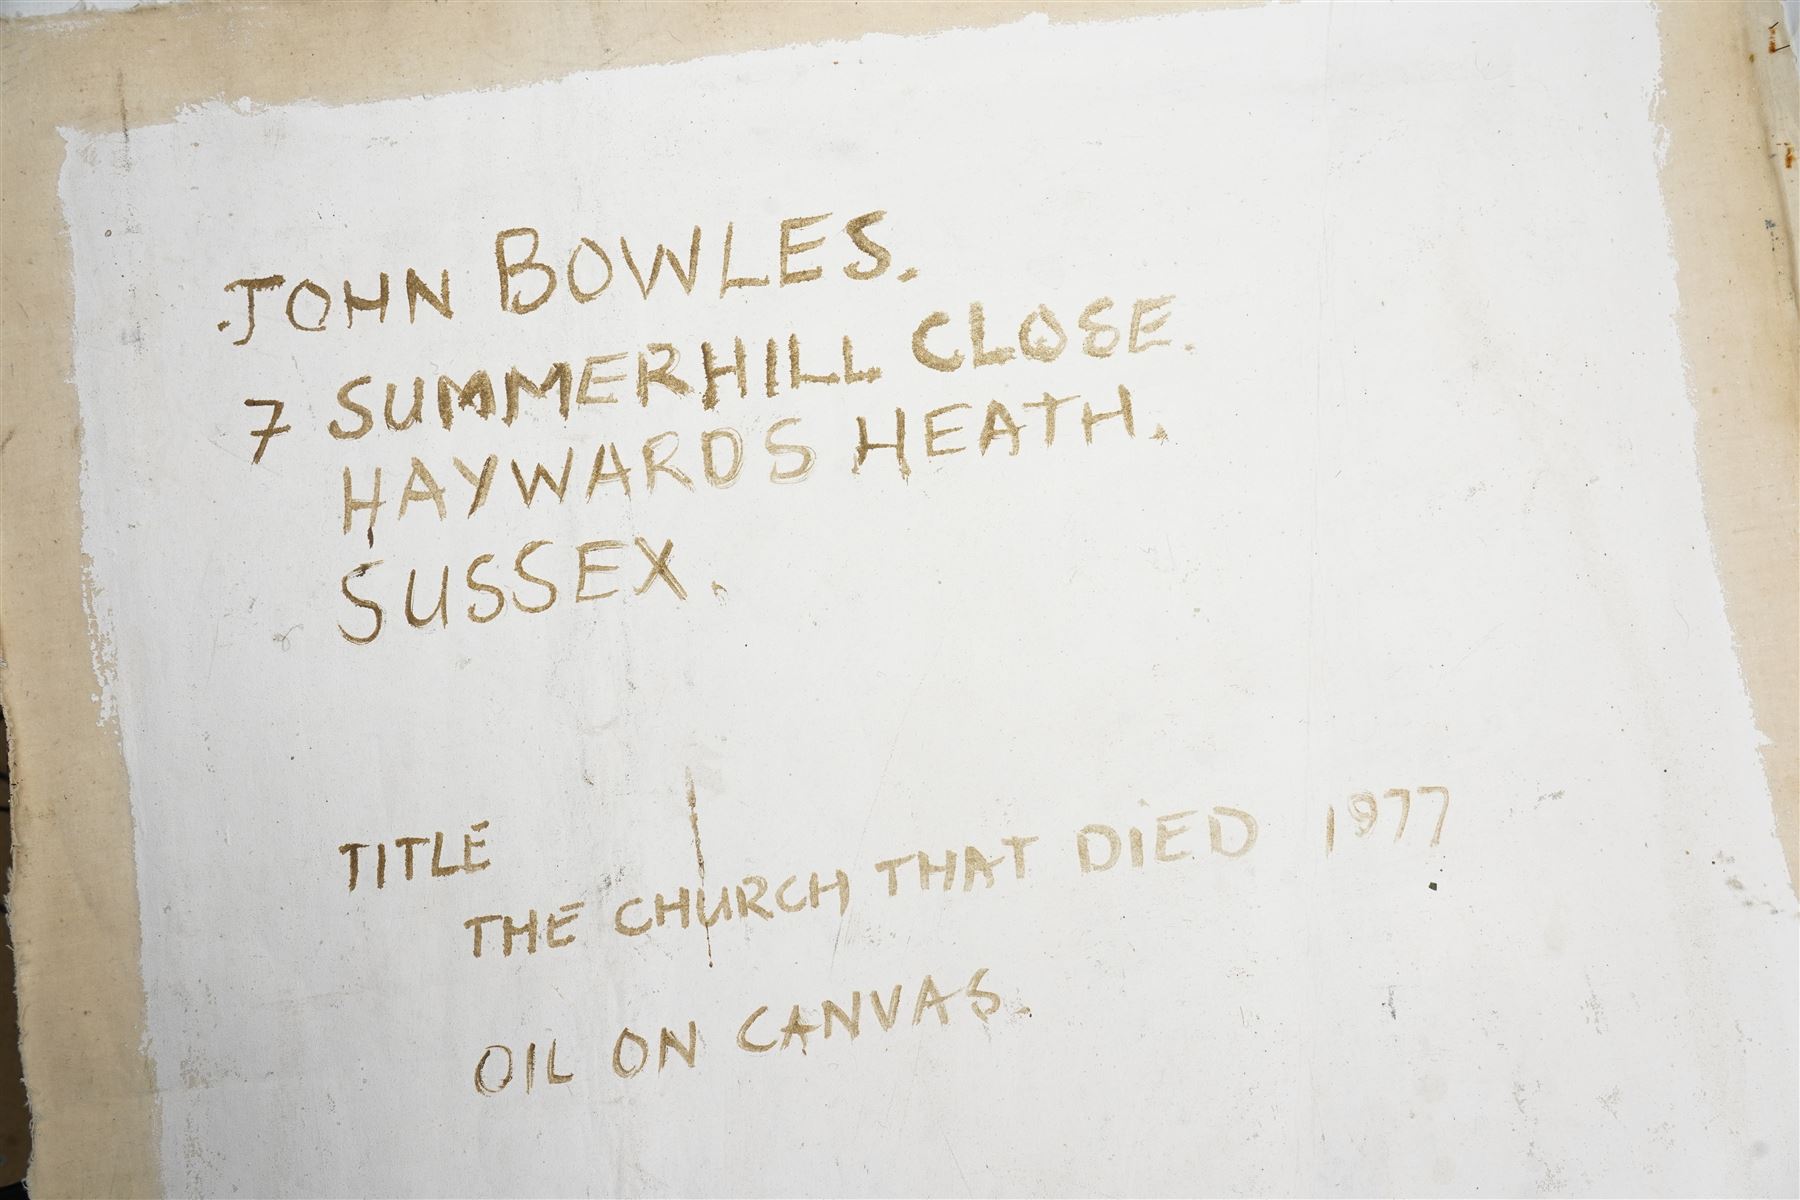 JOHN BOWLES.
7 SUMMERHILL CLOSE.
HAYWARDS HEATH.
SUSSEX.
TITLE
THE CHURCH THAT DIED 1977
OIL ON CANVAS.